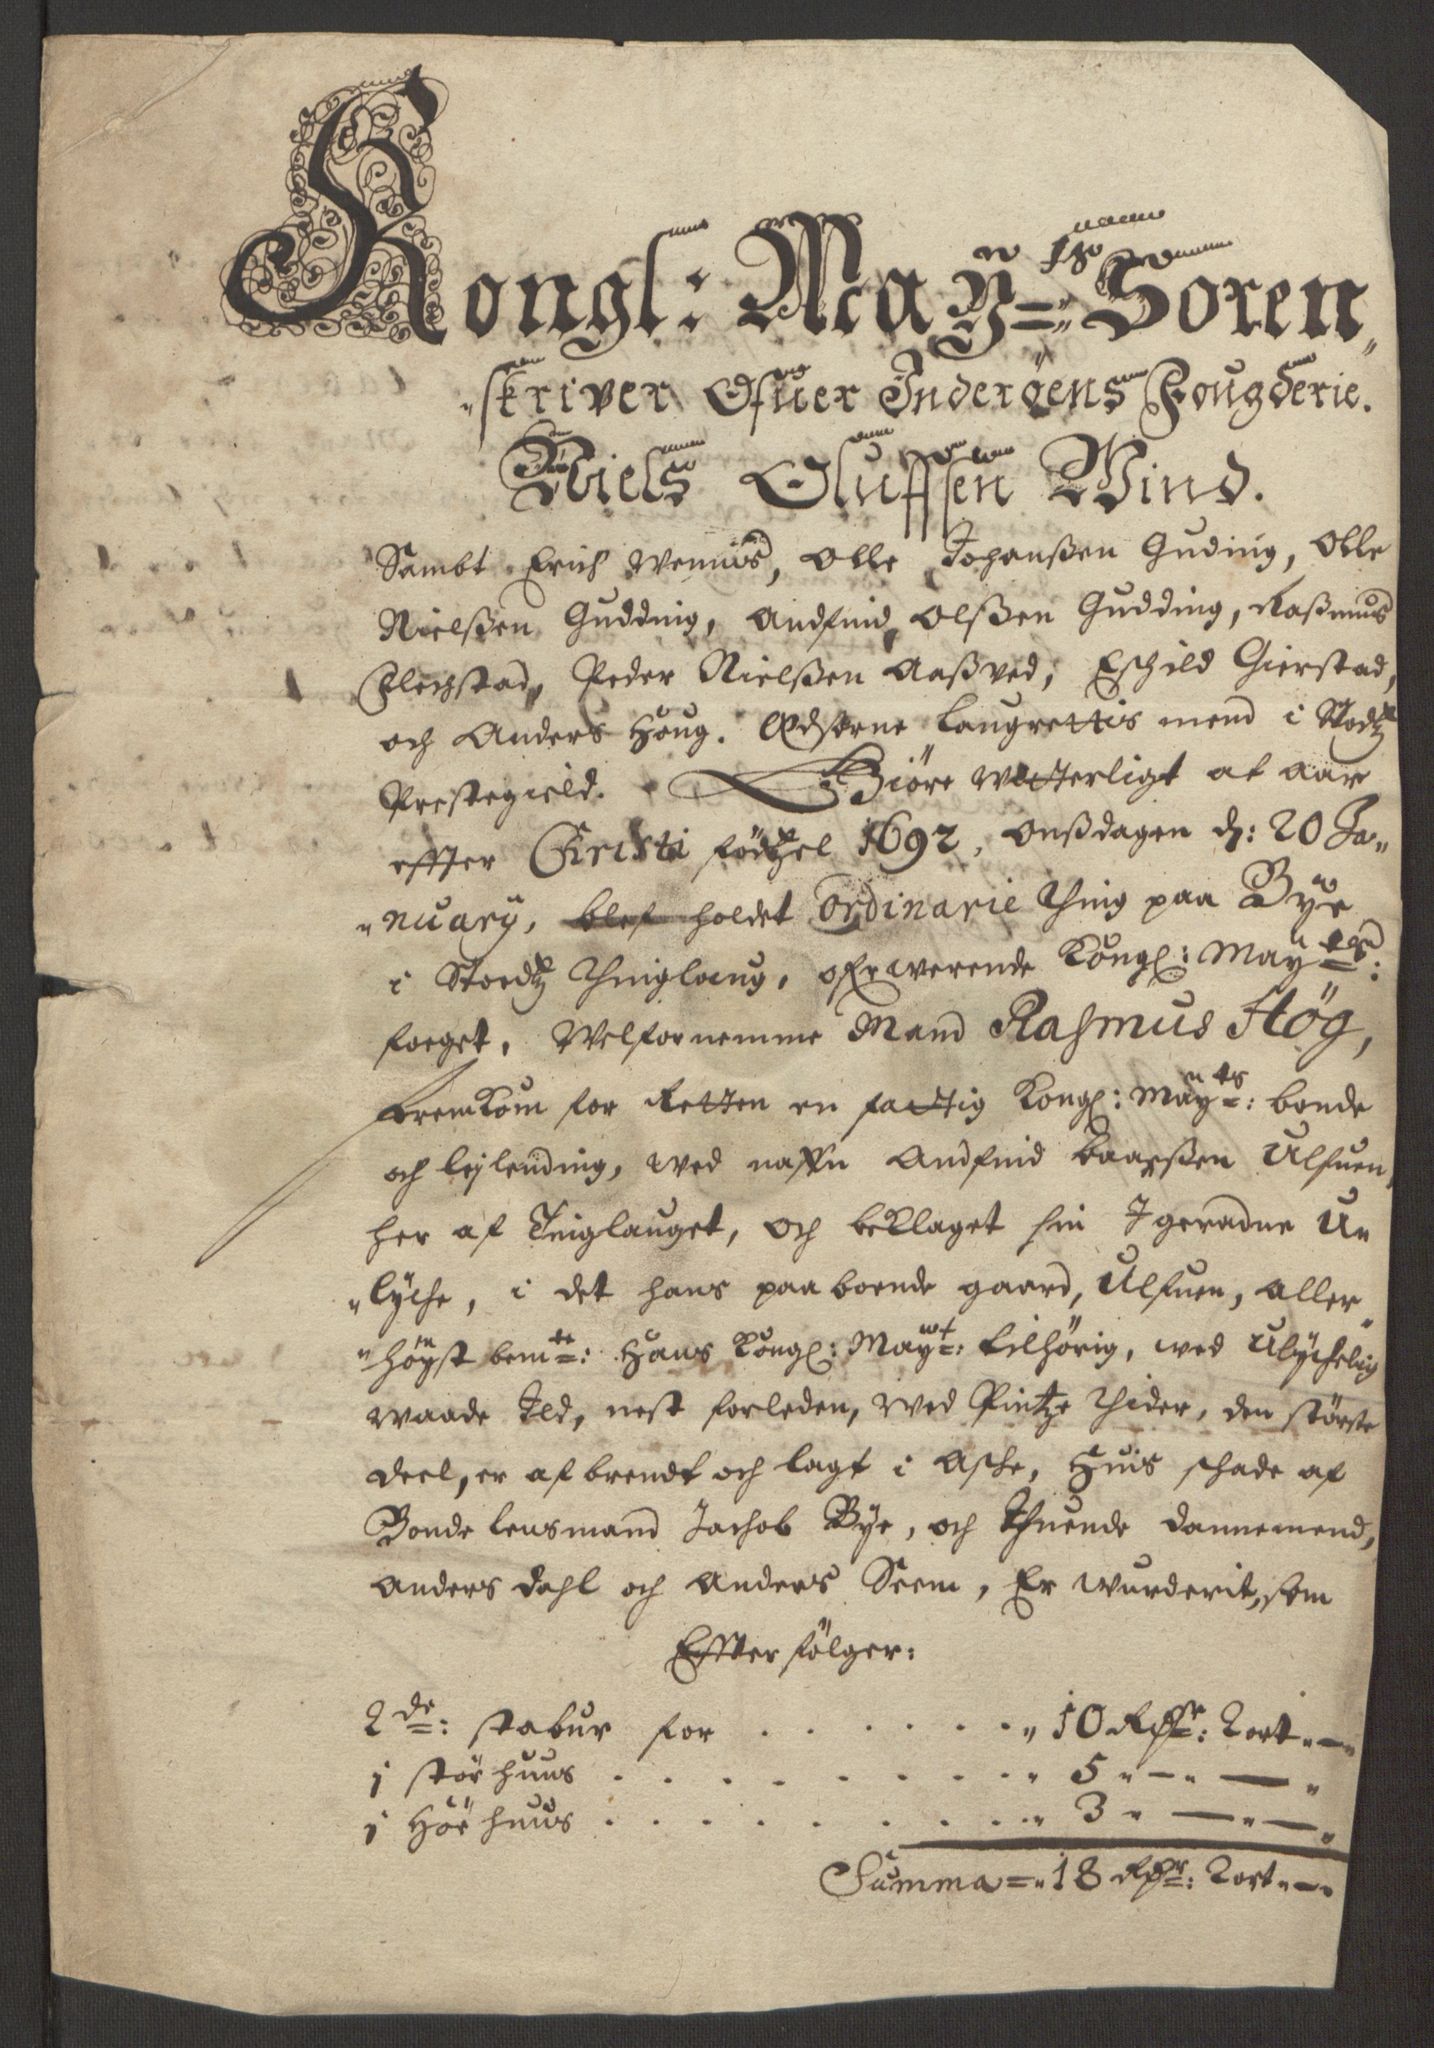 Kongl: May:ts Soren
skriver Ofuer Inderöens Fougderie.
Niels Oluffsen Wind.
Sambt Erich Wennes, Olle Johanßen Guding, Olle
Nielßen Gudding, Andfind Olßen Gudding, Raßmus
Flechstad, Peder Nielßen Aaßved, Eschild Gierstad,
och Anders Houg. Edsorne Laugrettis mend i Stodtz
Prestegield. Giöre Witterligt at aar
effter Christi födtzel 1692, Onßdagen d: 20 Ja„
„nuarÿ, blef holdet Ordinarie Thing paa Bÿe
i Stoedtz Thinglaug, ofverwerende Kongl: May:ts:
foeget, Welfornemme Mand Rasmus Hög,
fremkom for Retten en fattig Kongl: May:ts: bonde
och leÿlending, wed naffn Andfind Baarßen Ulfuen,
her af Tinglauget, och beklaget sin Igeradne U„
„lÿche, i det hans paaboende gaard, Ulfuen, aller„
„höÿst bem:te: Hans Kongl: May:t: tilhörig, wed Ulÿchelig
Waade Ild, nest forleden, Wed Pintze Thider, den störste
deel, er afbrendt och lagt i Asche, Huis schade af
Bonde lensmand Jachob Bÿe, och Thuende Dannemend,
Anders Dahl och Anders Seem, Er Wurderit, som
Effter fölger:
2de: stabur for . . . . . . „ 10 Rdr: 2 ort „—„
1 stör huus . . . . . . . . „ 5 „—„ — „
1 Hör huus . . . . . . . . „ 3 „ — „—„
Summa =„ 18 Rdr: 2 ort „—„